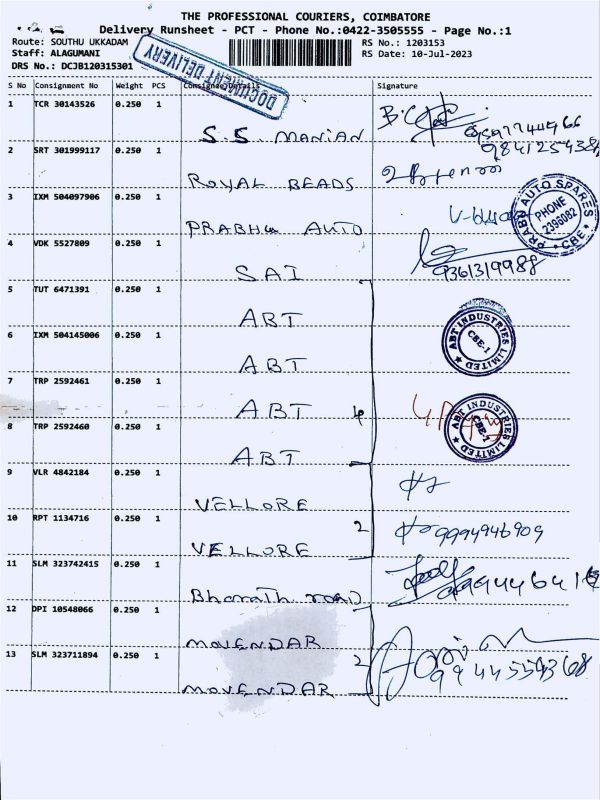 THE PROFESSIONAL COURIERS, COIMBATORE
Delivery Runsheet - PCT - Phone No.:0422-3505555 - Page No.:1
Route: SOUTHU UKKADAM RS No.: 1203153
Staff: ALAGUMANI RS Date: 10-Jul-2023
DRS No.: DCJB120315301
DOCUMENT DELIVERY
S No Consignment No Weight PCS Consignee Details Signature
1 TCR 30143526 0.250 1
S.S. MANIAN
2 SRT 301999117 0.250 1
ROYAL BEADS
3 IXM 504097906 0.250 1
PRABHU AUTO
PRABU AUTO SPARES PHONE 2396082 CBE
4 VDK 5527809 0.250 1
SAI 9361319988
5 TUT 6471391 0.250 1
ABT
ABT INDUSTRIES LIMITED CBE-1
6 IXM 504145006 0.250 1
ABT
7 TRP 2592461 0.250 1
ABT 4
ABT INDUSTRIES LIMITED CBE-1
8 TRP 2592460 0.250 1
ABT
9 VLR 4842184 0.250 1
VELLORE
10 RPT 1134716 0.250 1
VELLORE 2 9994946909
11 SLM 323742415 0.250 1
Bharath ROAD
12 DPI 10548066 0.250 1
MOVENDAR
13 SLM 323711894 0.250 1
MOVENDAR 2